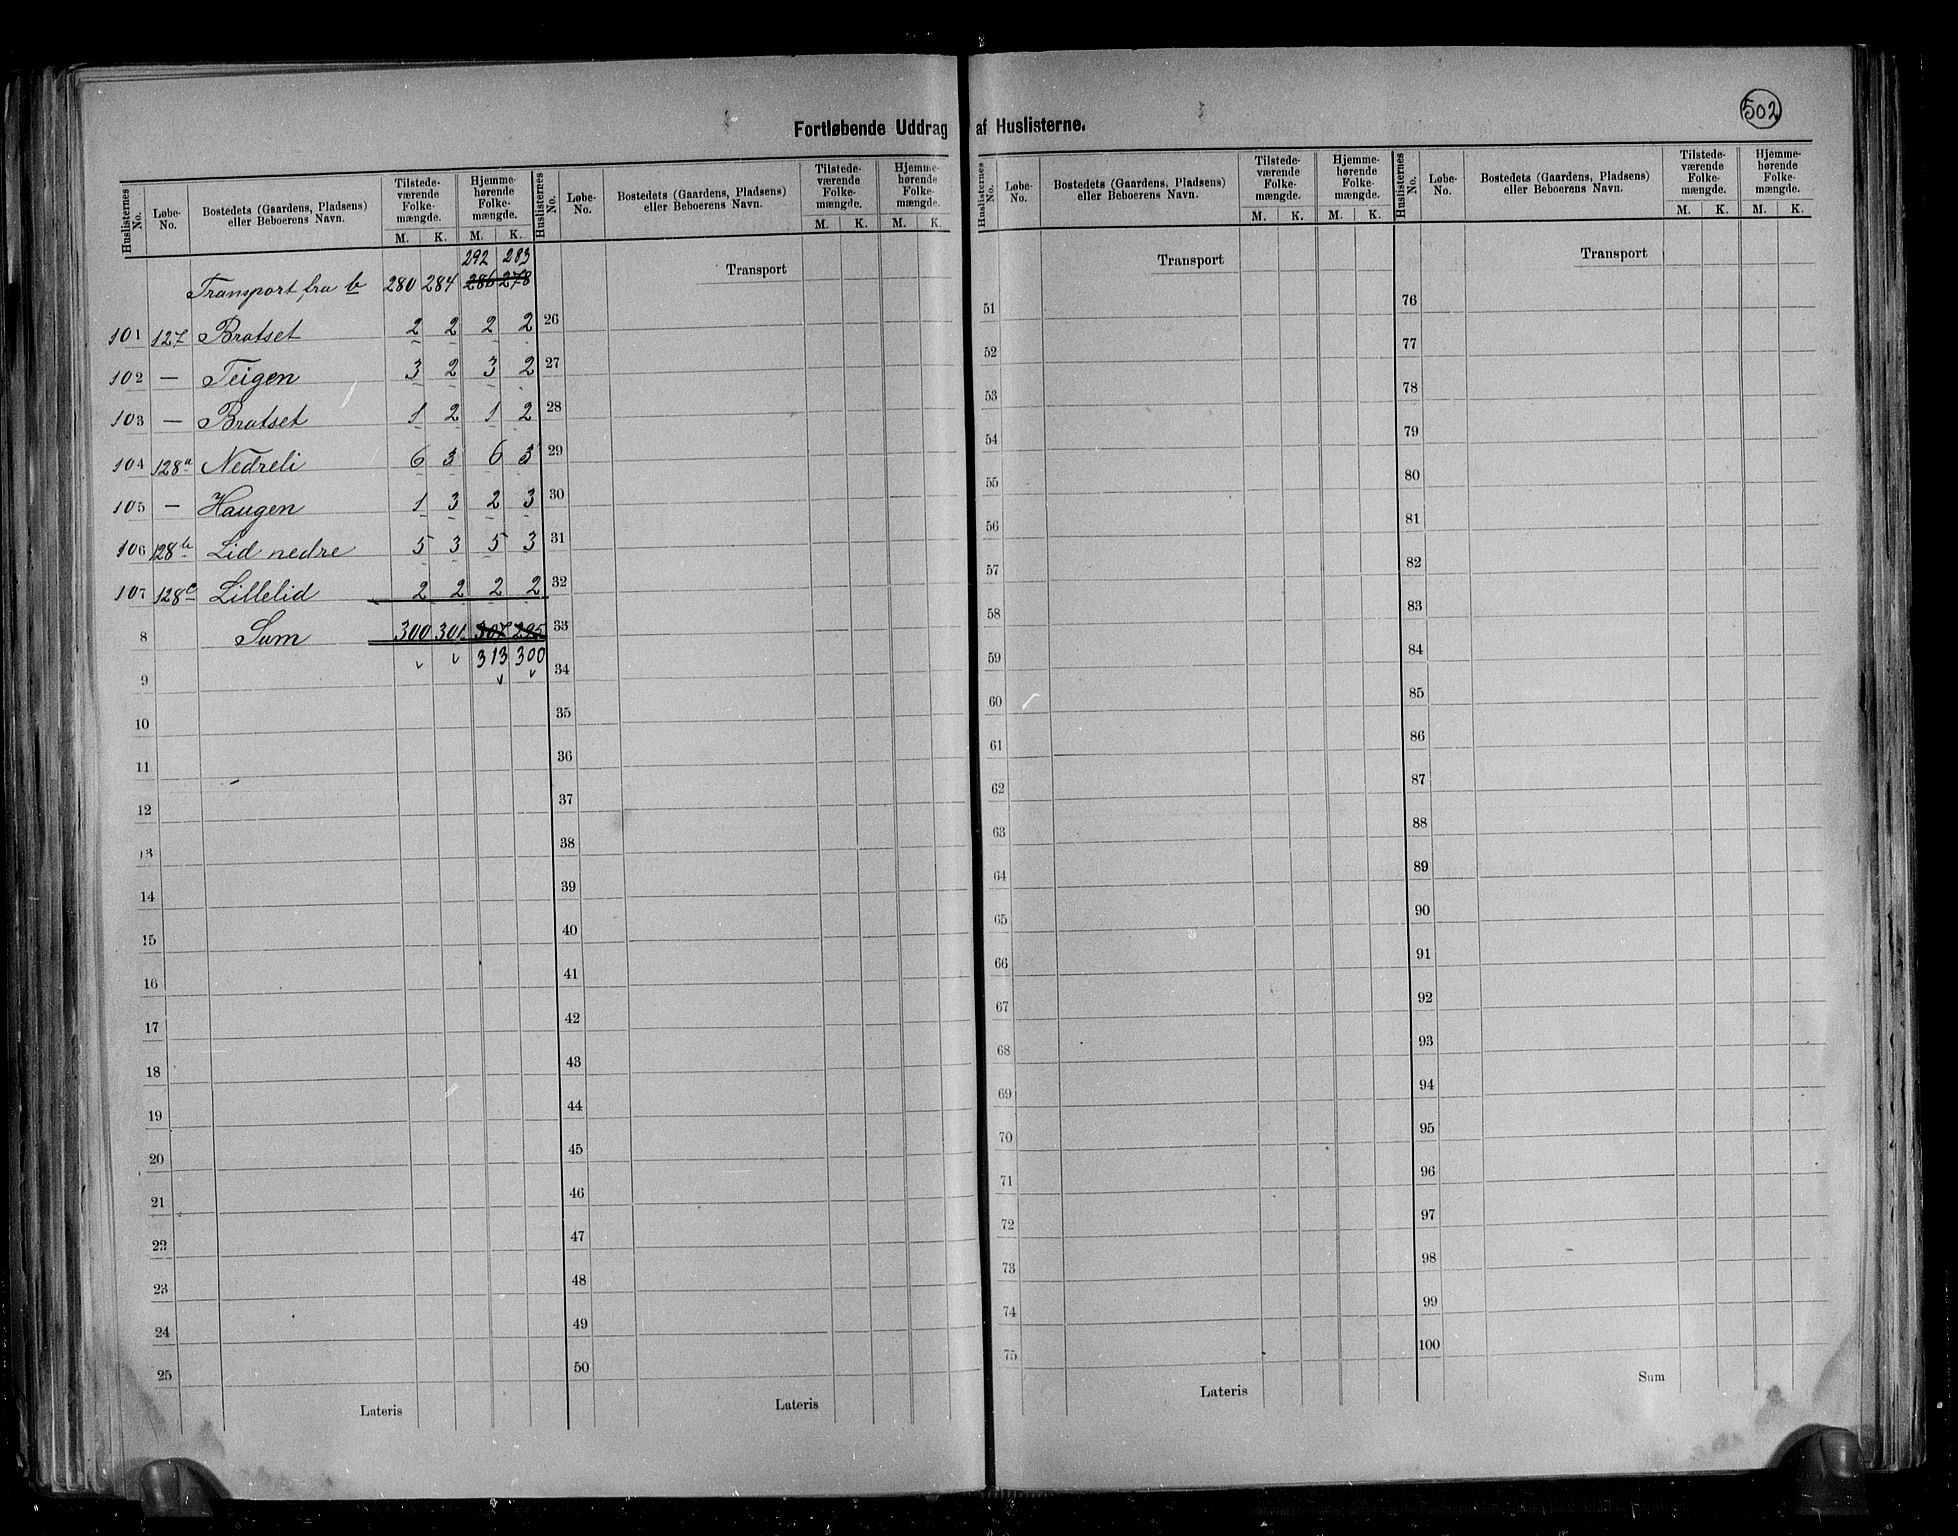 502
Fortløbende Uddrag af Huslisterne.
Huslisternes No. Løbe-No. Bostedets (Gaardens, Pladsens) eller Beboerens Navn. Tilstedeværende Folkemængde. M. K. Hjemmehørende Folkemængde. M. K.
Huslisternes No. Løbe-No. Bostedets (Gaardens, Pladsens) eller Beboerens Navn. Tilstedeværende Folkemængde. M. K. Hjemmehørende Folkemængde. M. K.
Huslisternes No. Løbe-No. Bostedets (Gaardens, Pladsens) eller Beboerens Navn. Tilstedeværende Folkemængde. M. K. Hjemmehørende Folkemængde. M. K.
Huslisternes No. Løbe-No. Bostedets (Gaardens, Pladsens) eller Beboerens Navn. Tilstedeværende Folkemængde. M. K. Hjemmehørende Folkemængde. M. K.
292 283
Transport fra b 280 284 286 278
101 127 Bratset 2 2 2 2
102 — Teigen 3 2 3 2
103 — Bratset 1 2 1 2
104 128a Nedreli 6 3 6 3
105 — Haugen 1 3 2 3
106 128b Lid nedre 5 3 5 3
107 128c Lillelid 2 2 2 2
8 Sum 300 301 307 295
313 300
9
10
11
12
13
14
15
16
17
18
19
20
21
22
23
24
25
Lateris
Transport
26
27
28
29
30
31
32
33
34
35
36
37
38
39
40
41
42
43
44
45
46
47
48
49
50
Lateris
Transport
51
52
53
54
55
56
57
58
59
60
61
62
63
64
65
66
67
68
69
70
71
72
73
74
75
Lateris
Transport
76
77
78
79
80
81
82
83
84
85
86
87
88
89
90
91
92
93
94
95
96
97
98
99
100
Sum